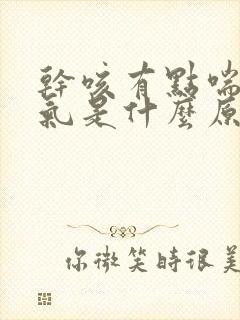 幹咳有點喘
氣是什麼原
你微笑時很美